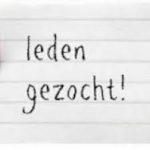 leden
gezocht!